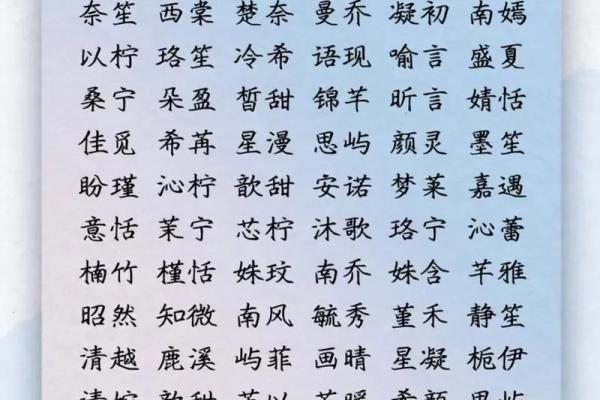 奈笙 西棠 楚奈 曼乔 凝初 南嫣
以柠 珞笙 冷希 语现 喻言 盛夏
桑宁 朵盈 皙甜 锦芊 昕言 婧恬
佳觅 希苒 星漫 思屿 颜灵 墨笙
盼瑾 沁柠 歆甜 安诺 梦莱 嘉遇
意恬 茉宁 芯柠 沐歌 珞宁 沁蕾
楠竹 槿恬 姝玟 南乔 姝含 芊雅
昭然 知微 南风 毓秀 堇禾 静笙
清越 鹿溪 屿菲 画晴 星凝 栀伊
歆甜 希颜 思屿